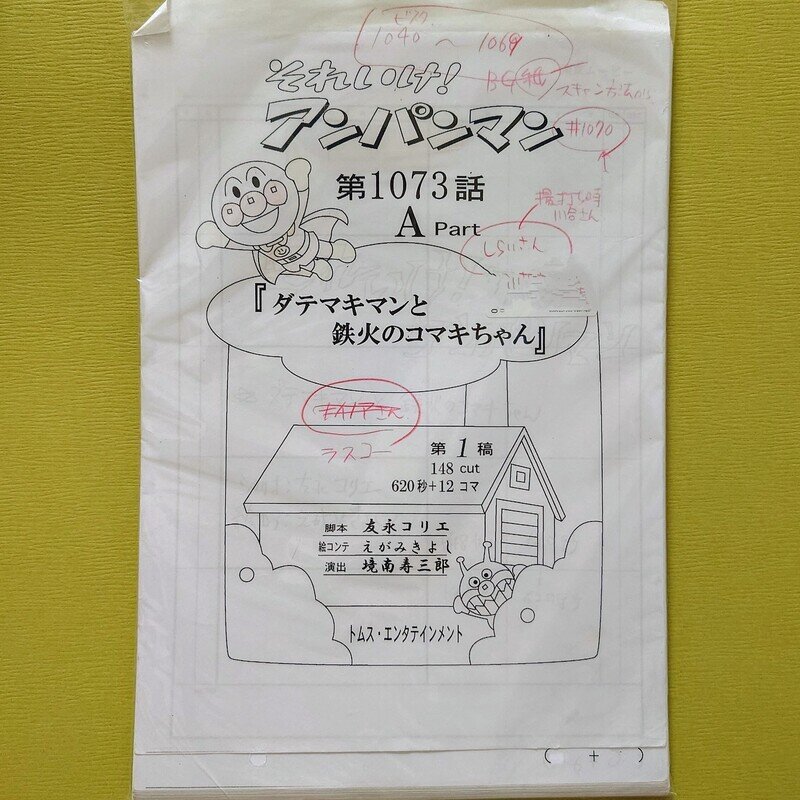 ビスタ
1040 ～ 1069
BG紙
スキャン方法から
#1070
それいけ!
アンパンマン
第1073話
A Part
しらいさん
『ダテマキマンと
鉄火のコマキちゃん』
ラスコー
第1稿
148 cut
620秒+12コマ
脚本 友永コリエ
絵コンテ えがみきよし
演出 境南寿三郎
トムス・エンタテインメント
( + )